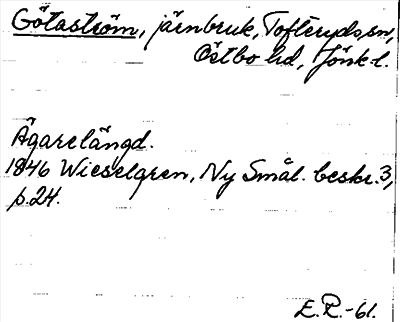 Götaström, järnbruk, Tofteryds sn,
Östbo hd, Jönk. l.
Ägarelängd.
1846 Wieselgren, Ny Smål. beskr. 3,
p. 24.
E.R.-61.